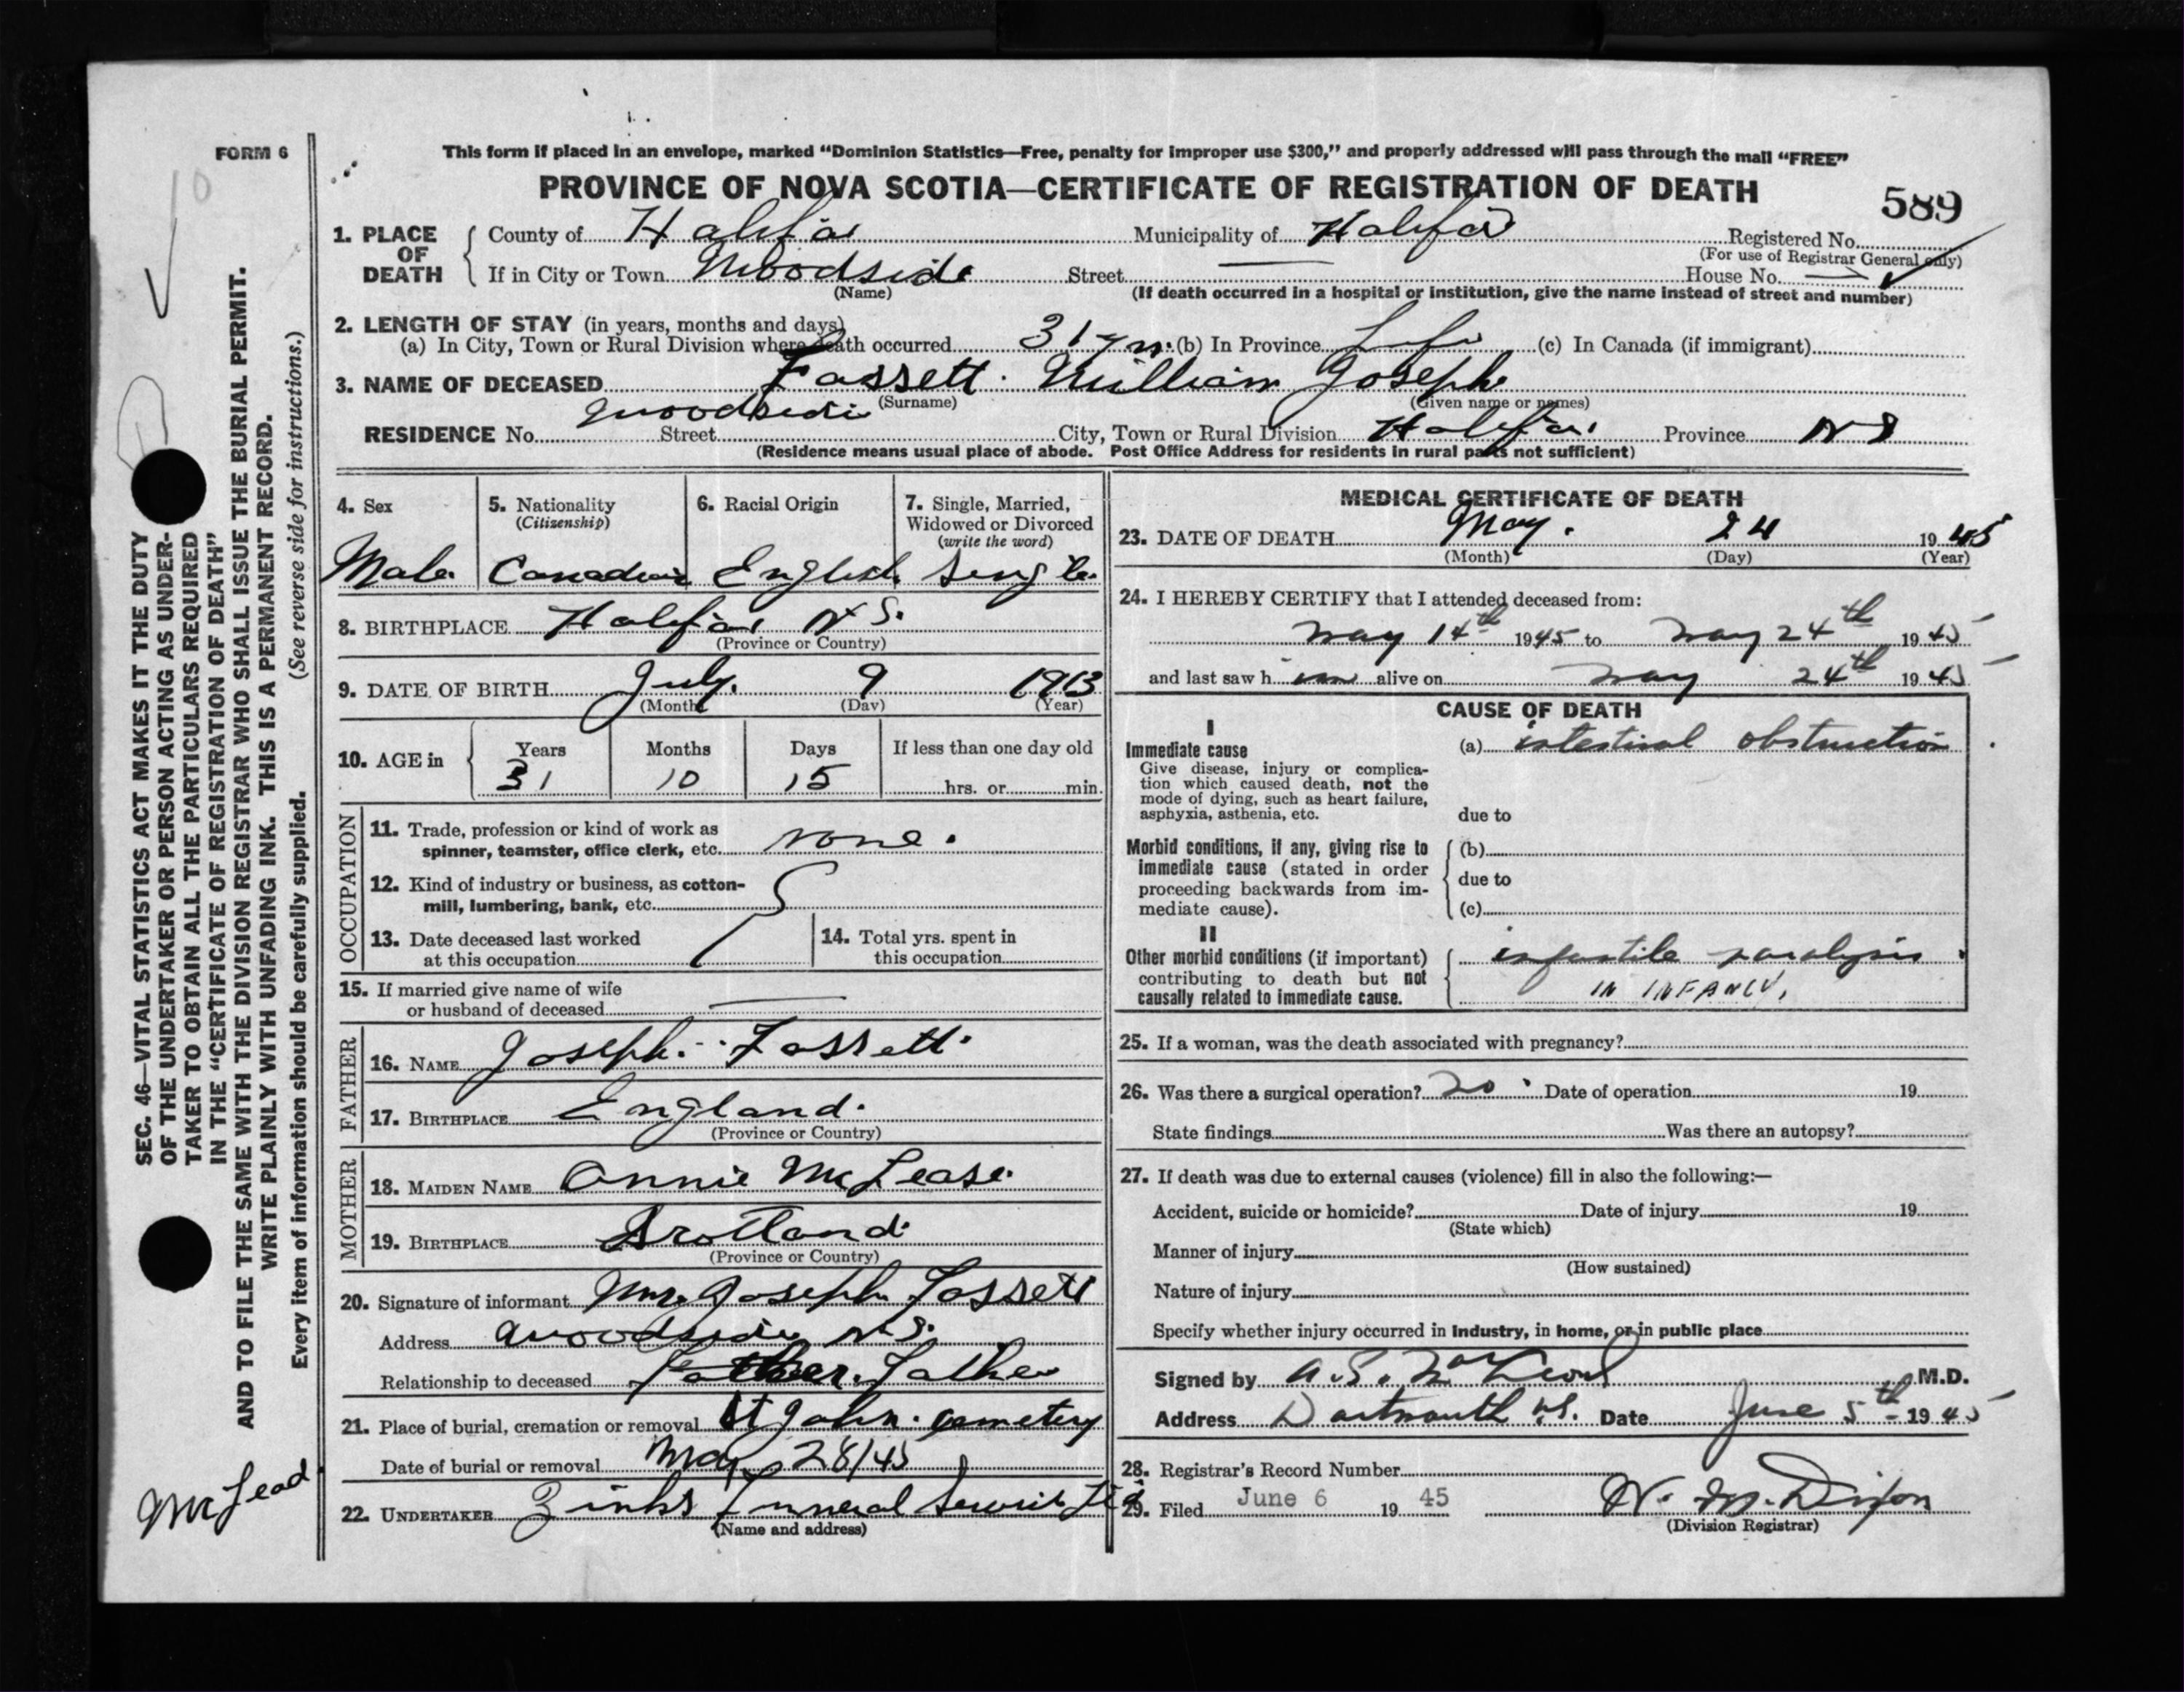 FORM 6
This form if placed in an envelope, marked “Dominion Statistics—Free, penalty for improper use $300,” and properly addressed will pass through the mail “FREE”
PROVINCE OF NOVA SCOTIA—CERTIFICATE OF REGISTRATION OF DEATH
589
1. PLACE OF DEATH
County of Halifax Municipality of Halifax Registered No.
(For use of Registrar General only)
If in City or Town Woodside Street — House No. —
(Name) (If death occurred in a hospital or institution, give the name instead of street and number)
2. LENGTH OF STAY (in years, months and days)
(a) In City, Town or Rural Division where death occurred 31 yrs. (b) In Province Life (c) In Canada (if immigrant)
3. NAME OF DECEASED Fassett. William Joseph
(Surname) (Given name or names)
RESIDENCE No. Woodside Street City, Town or Rural Division Halifax Province N S
(Residence means usual place of abode. Post Office Address for residents in rural parts not sufficient)
4. Sex
Male
5. Nationality
(Citizenship)
Canadian
6. Racial Origin
English
7. Single, Married,
Widowed or Divorced
(write the word)
Single
8. BIRTHPLACE Halifax N S.
(Province or Country)
9. DATE OF BIRTH July. 9 1913
(Month) (Day) (Year)
10. AGE in
Years Months Days If less than one day old
31 10 15 hrs. or min.
OCCUPATION
11. Trade, profession or kind of work as
spinner, teamster, office clerk, etc. none.
12. Kind of industry or business, as cotton-
mill, lumbering, bank, etc.
13. Date deceased last worked
at this occupation
14. Total yrs. spent in
this occupation
15. If married give name of wife
or husband of deceased —
FATHER
16. NAME Joseph. Fassett.
17. BIRTHPLACE England.
(Province or Country)
MOTHER
18. MAIDEN NAME Annie McLease.
19. BIRTHPLACE Scotland.
(Province or Country)
20. Signature of informant Mr. Joseph Fassett
Address Woodside N S.
Relationship to deceased Father. Father
21. Place of burial, cremation or removal St John. Cemetery
Date of burial or removal May 28/45
22. UNDERTAKER Zinks Funeral Service Ltd.
(Name and address)
MEDICAL CERTIFICATE OF DEATH
23. DATE OF DEATH May. 24 19 45
(Month) (Day) (Year)
24. I HEREBY CERTIFY that I attended deceased from:
May 14th 1945 to May 24th 19 45
and last saw h im alive on May 24th 19 45
CAUSE OF DEATH
I
Immediate cause
Give disease, injury or complica-
tion which caused death, not the
mode of dying, such as heart failure,
asphyxia, asthenia, etc.
(a) intestinal obstruction
due to
Morbid conditions, if any, giving rise to
immediate cause (stated in order
proceeding backwards from im-
mediate cause).
(b)
due to
(c)
II
Other morbid conditions (if important)
contributing to death but not
causally related to immediate cause.
infantile paralysis
IN INFANCY,
25. If a woman, was the death associated with pregnancy?
26. Was there a surgical operation? no Date of operation 19
State findings Was there an autopsy?
27. If death was due to external causes (violence) fill in also the following:—
Accident, suicide or homicide? Date of injury 19
(State which)
Manner of injury
(How sustained)
Nature of injury
Specify whether injury occurred in industry, in home, or in public place
Signed by A. S. MacLeod M.D.
Address Dartmouth N.S. Date June 5th 19 45
28. Registrar's Record Number
29. Filed June 6 19 45 W. M. Dixon
(Division Registrar)
SEC. 46—VITAL STATISTICS ACT MAKES IT THE DUTY
OF THE UNDERTAKER OR PERSON ACTING AS UNDER-
TAKER TO OBTAIN ALL THE PARTICULARS REQUIRED
IN THE “CERTIFICATE OF REGISTRATION OF DEATH”
AND TO FILE THE SAME WITH THE DIVISION REGISTRAR WHO SHALL ISSUE THE BURIAL PERMIT.
WRITE PLAINLY WITH UNFADING INK. THIS IS A PERMANENT RECORD.
Every item of information should be carefully supplied. (See reverse side for instructions.)
McLeod
10